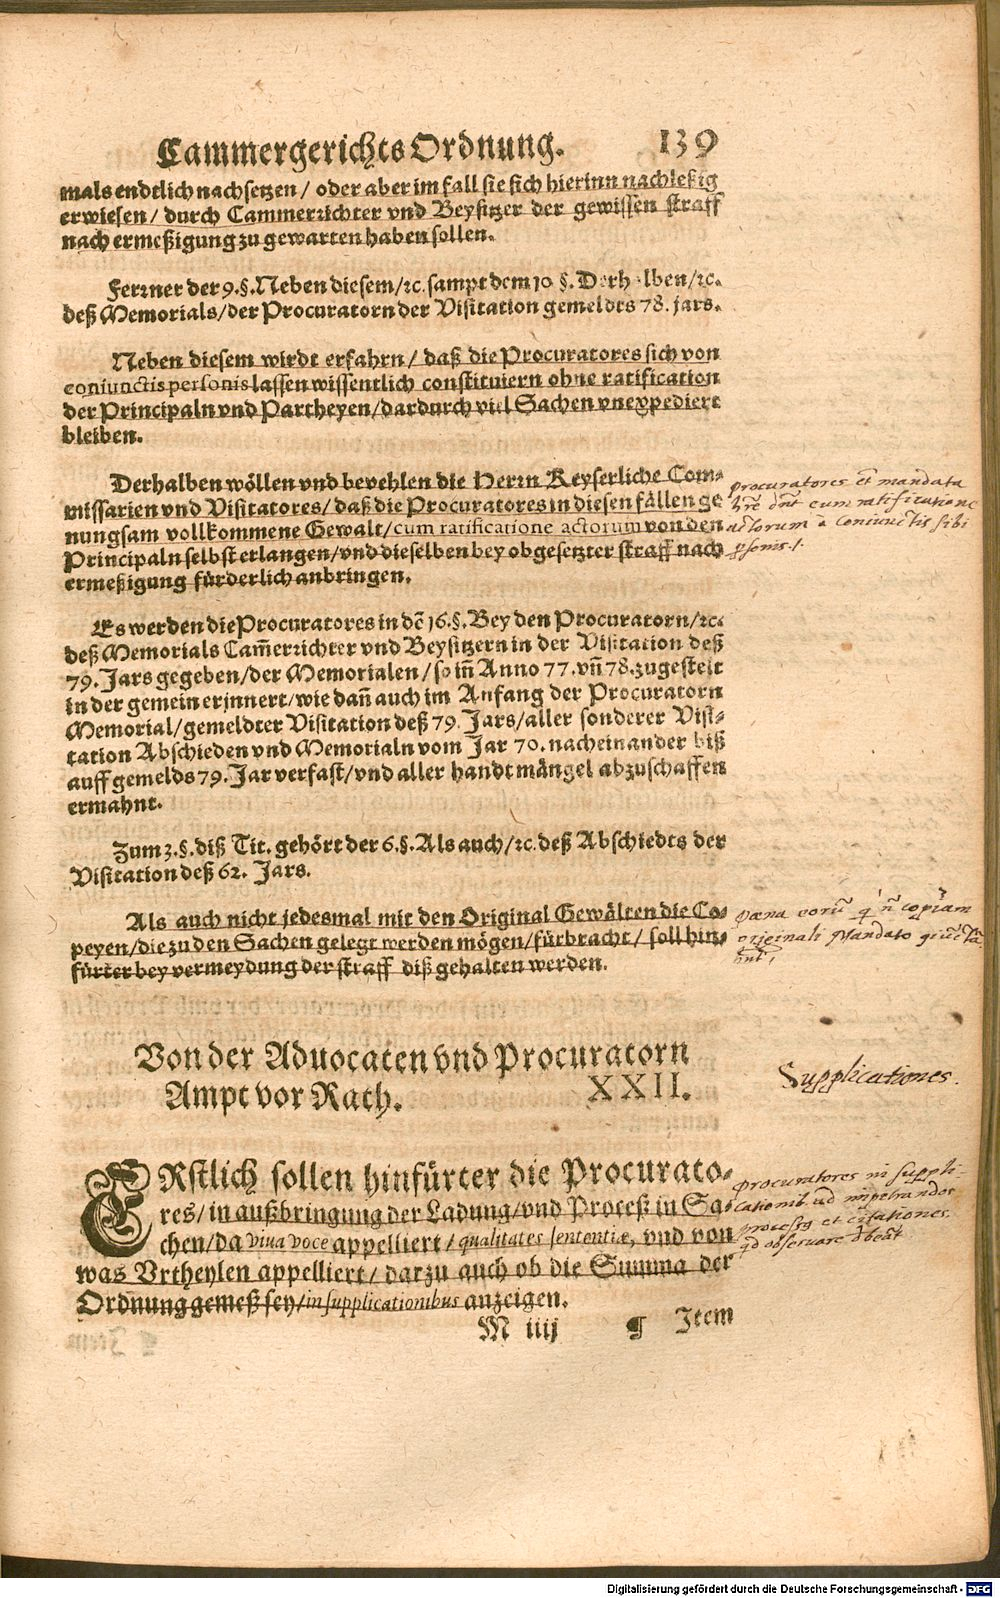 CammergerichtsOrdnung. 139
mals endtlich nachsetzen / oder aber im fall sie sich hierinn nachleßig
erwiesen / durch Cammerrichter vnd Beysitzer der gewissen straff
nach ermeßigung zu gewarten haben sollen.
Ferrner der 9.§. Neben diesem /ꝛc. sampt dem 10 §. Derhalben /ꝛc.
deß Memorials / der Procuratorn der Visitation gemeldts 78. jars.
Neben diesem wirdt erfahrn / daß die Procuratores sich von
coniunctis personis lassen wissentlich constituiern ohne ratification
der Principaln vnd Partheyen / dardurch viel Sachen vnexpediert
bleiben.
Derhalben wöllen vnd bevehlen die Herrn Keyserliche Com-
missarien vnd Visitatores / daß die Procuratores in diesen fällen ge
nungsam vollkommene Gewalt / cum ratificatione actorum von den
Principaln selbst erlangen / vnd dieselben bey obgesetzter straff nach
ermeßigung fürderlich anbringen.
procuratores et mandata
cum ratificatione
actorum a coniunctis sibi
Es werden die Procuratores in dẽ 16.§. Bey den Procuratorn /ꝛc.
deß Memorials Cam̃errichter vnd Beysitzern in der Visitation deß
79. Jars gegeben / der Memorialen / so im̃ Anno 77. vñ 78. zugestelt
in der gemein erjnnert / wie dañ auch im Anfang der Procuratorn
Memorial / gemeldter Visitation deß 79. Jars / aller sonderer Visi-
tation Abschieden vnd Memorialn vom Jar 70. nacheinander biß
auff gemelds 79. Jar verfast / vnd aller handt mängel abzuschaffen
ermahnt.
Zum 3.§. diß Tit. gehört der 6.§. Als auch /ꝛc. deß Abschiedts der
Visitation deß 62. Jars.
Als auch nicht jedesmal mit den Original Gewälten die Co-
peyen / die zu den Sachen gelegt werden mögen / fürbracht / soll hin-
fürter bey vermeydung der straff diß gehalten werden.
copiam
originali Mandato
Von der Aduocaten vnd Procuratorn
Ampt vor Rath. XXII.
Supplicationes.
ERstlich sollen hinfürter die Procurato-
res / in außbringung der Ladung / vnd Proceß in Sa-
chen / da viua voce appelliert / qualitates sententiæ, vnd von
was Vrtheylen appelliert / darzu auch ob die Summa der
Ordnung gemeß sey / in supplicationibus anzeigen.
procuratores in suppli-
ad impetrandos
et citationes
observare
M iiij ¶ Item
Digitalisierung gefördert durch die Deutsche Forschungsgemeinschaft - DFG